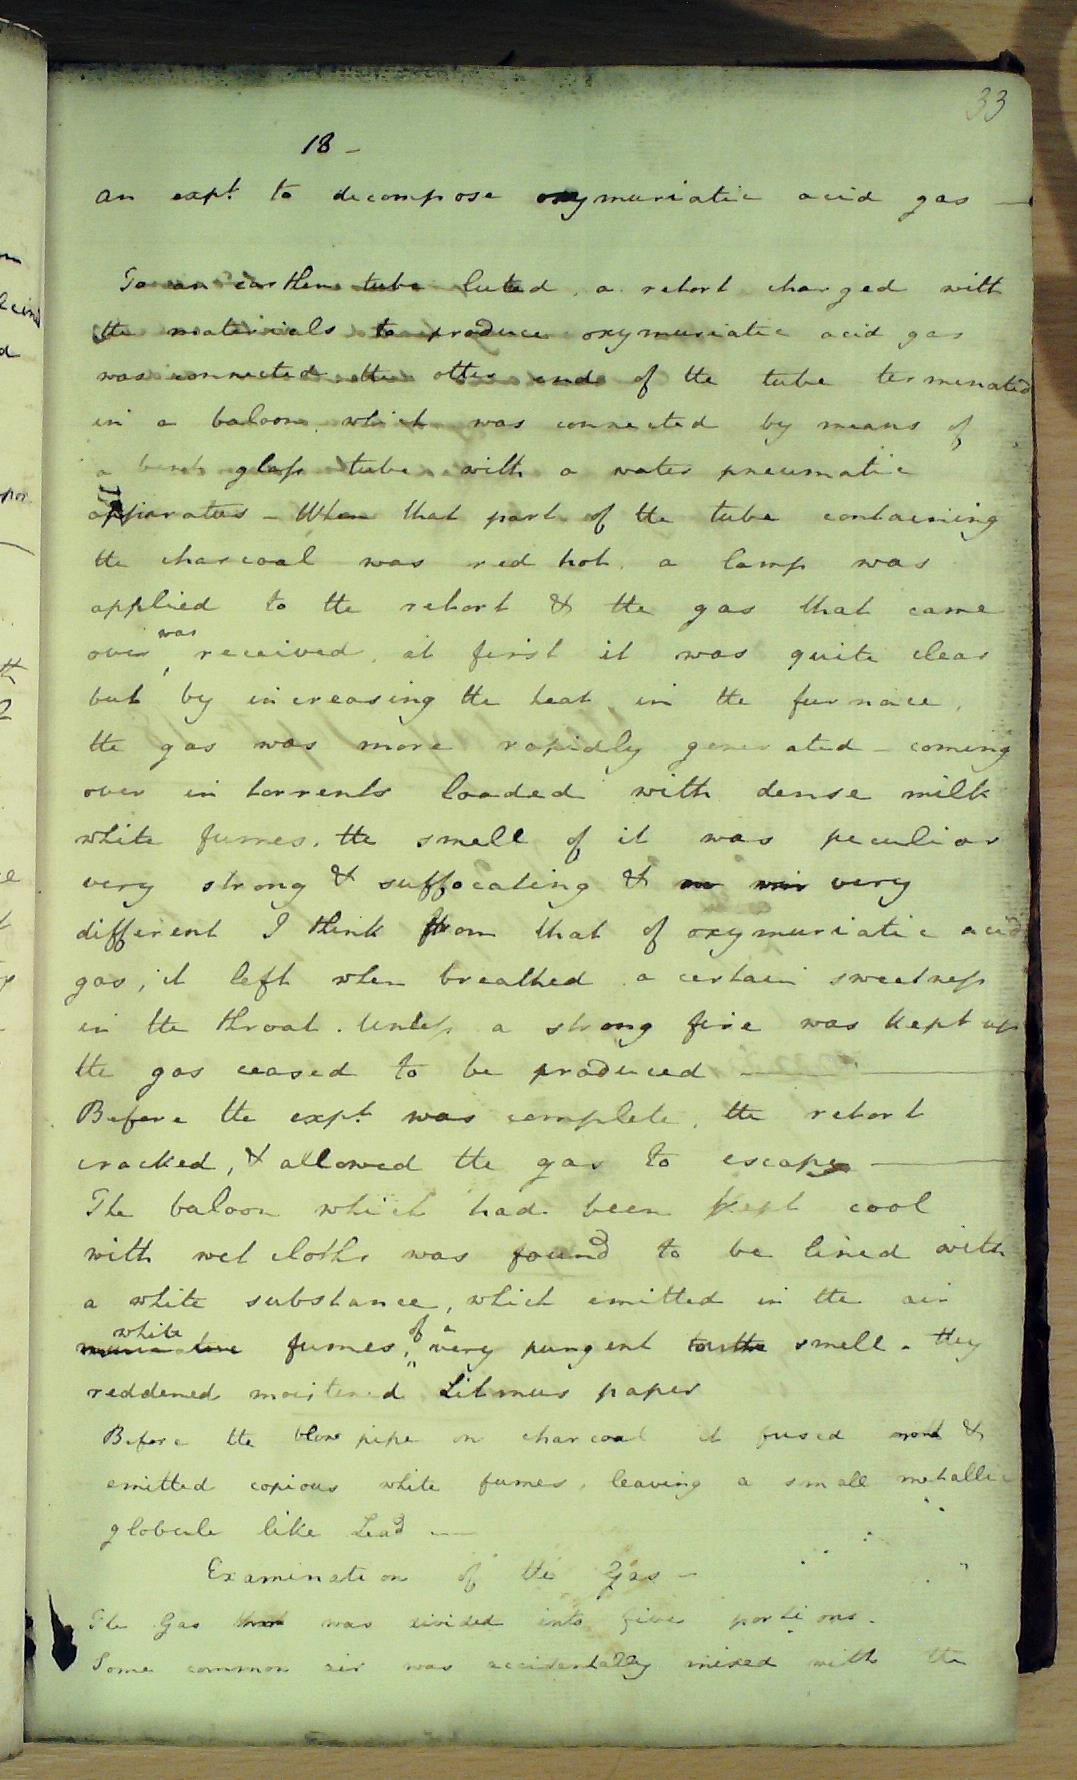 33
18 -
An expt. to decompose oxymuriatic acid gas —
To an earthen tube luted, a retort charged with
the materials to produce oxymuriatic acid gas
was connected the other end of the tube terminated
in a baloon which was connected by means of
a bent glass tube with a water pneumatic
apparatus - When that part of the tube containing
the charcoal was red hot, a lamp was
applied to the retort & the gas that came
over was received, at first it was quite clear
but by increasing the heat in the furnace,
the gas was more rapidly generated - coming
over in torrents loaded with dense milk
white fumes. the smell of it was peculiar
very strong & suffocating & very
different I think from that of oxymuriatic acid
gas, it left when breathed a certain sweetness
in the throat. Unless a strong fire was kept up
the gas ceased to be produced —
Before the expt. was complete, the retort
cracked, & allowed the gas to escape —
The baloon which had been kept cool
with wet cloths was found to be lined with
a white substance, which emitted in the air
white fumes, of a very pungent smell. they
reddened moistened Litmus paper
Before the blow pipe on charcoal it fused &
emitted copious white fumes, leaving a small metallic
globule like Lead —
Examination of the Gas -
The Gas was divided into five portions.
Some common air was accidentally mixed with the